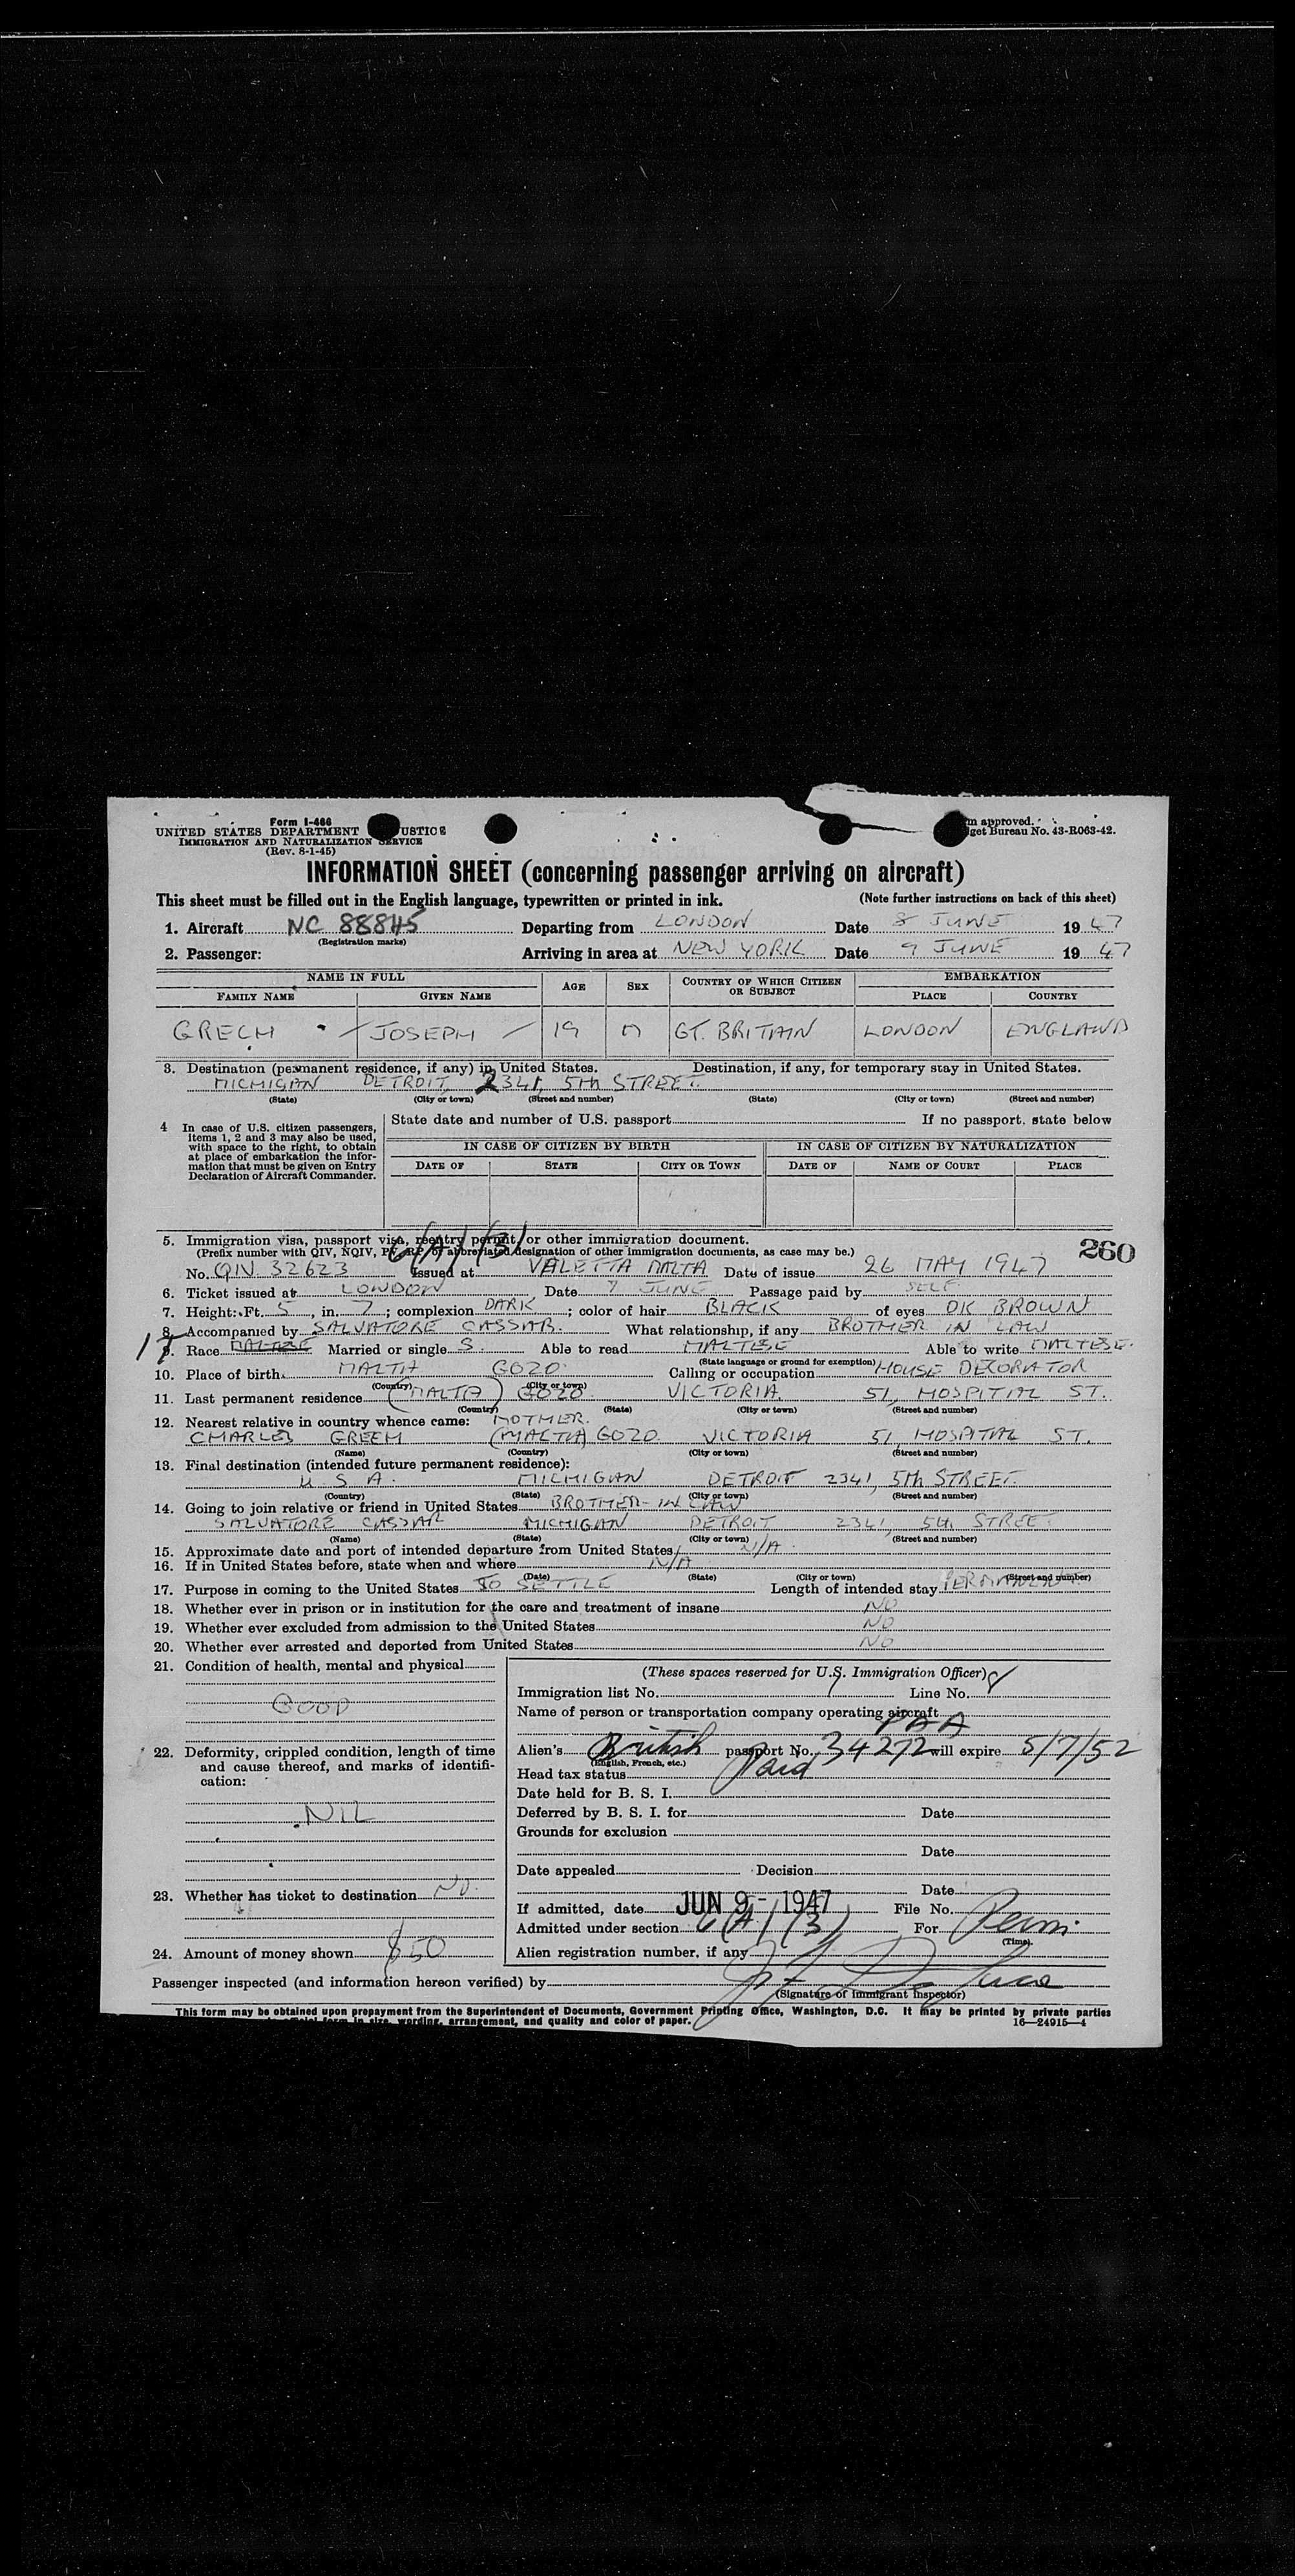 Form I-466
UNITED STATES DEPARTMENT USTICE
IMMIGRATION AND NATURALIZATION SERVICE
(Rev. 8-1-45)
m approved.
get Bureau No. 43-R063-42.
INFORMATION SHEET (concerning passenger arriving on aircraft)
This sheet must be filled out in the English language, typewritten or printed in ink. (Note further instructions on back of this sheet)
1. Aircraft NC 88845 Departing from LONDON Date 8 JUNE 19 47
(Registration marks)
2. Passenger: Arriving in area at NEW YORK Date 9 JUNE 19 47
NAME IN FULL AGE SEX COUNTRY OF WHICH CITIZEN OR SUBJECT EMBARKATION
FAMILY NAME GIVEN NAME PLACE COUNTRY
GRECH JOSEPH 19 M GT. BRITAIN LONDON ENGLAND
3. Destination (permanent residence, if any) in United States. Destination, if any, for temporary stay in United States.
MICHIGAN DETROIT, 2341, 5TH STREET.
(State) (City or town) (Street and number) (State) (City or town) (Street and number)
4 In case of U.S. citizen passengers, items 1, 2 and 3 may also be used, with space to the right, to obtain at place of embarkation the information that must be given on Entry Declaration of Aircraft Commander.
State date and number of U.S. passport If no passport, state below
IN CASE OF CITIZEN BY BIRTH IN CASE OF CITIZEN BY NATURALIZATION
DATE OF STATE CITY OR TOWN DATE OF NAME OF COURT PLACE
5. Immigration visa, passport visa, reentry permit, or other immigration document.
6(A)(3)
(Prefix number with QIV, NQIV, PV, RP or abbreviated designation of other immigration documents, as case may be.)
260
No. QIV 32623 Issued at VALETTA MALTA Date of issue 26 MAY 1947
6. Ticket issued at LONDON Date 7 JUNE Passage paid by SELF
7. Height: Ft. 5, in. 7; complexion DARK; color of hair BLACK of eyes DK BROWN
8. Accompanied by SALVATORE CASSAR. What relationship, if any BROTHER IN LAW
9. Race MALTESE Married or single S. Able to read MALTESE Able to write MALTESE.
(State language or ground for exemption)
10. Place of birth MALTA GOZO. Calling or occupation HOUSE DECORATOR
(Country) (City or town)
11. Last permanent residence (MALTA) GOZO. VICTORIA. 51, HOSPITAL ST.
(Country) (State) (City or town) (Street and number)
12. Nearest relative in country whence came: MOTHER.
CHARLES GRECH (MALTA) GOZO. VICTORIA 51, HOSPITAL ST.
(Name) (Country) (City or town) (Street and number)
13. Final destination (intended future permanent residence):
U S A. MICHIGAN DETROIT 2341, 5TH STREET.
(Country) (State) (City or town) (Street and number)
14. Going to join relative or friend in United States BROTHER-IN LAW
SALVATORE CASSAR MICHIGAN DETROIT 2341, 5th STREET
(Name) (State) (City or town) (Street and number)
15. Approximate date and port of intended departure from United States N/A
16. If in United States before, state when and where N/A
(Date) (State) (City or town) (Street and number)
17. Purpose in coming to the United States TO SETTLE Length of intended stay PERMANENT
18. Whether ever in prison or in institution for the care and treatment of insane NO
19. Whether ever excluded from admission to the United States NO
20. Whether ever arrested and deported from United States NO
21. Condition of health, mental and physical
GOOD
22. Deformity, crippled condition, length of time and cause thereof, and marks of identification:
NIL
23. Whether has ticket to destination NO.
24. Amount of money shown $50
(These spaces reserved for U.S. Immigration Officer)
Immigration list No. Line No.
Name of person or transportation company operating aircraft
PAA
Alien's British passport No. 34272 will expire 5/7/52
(English, French, etc.)
Head tax status Paid
Date held for B. S. I.
Deferred by B. S. I. for Date
Grounds for exclusion
Date
Date appealed Decision
Date
If admitted, date JUN 9 - 1947 File No.
Admitted under section 6(A)(3) For Perm.
(Time).
Alien registration number, if any
Passenger inspected (and information hereon verified) by
(Signature of Immigrant Inspector)
This form may be obtained upon prepayment from the Superintendent of Documents, Government Printing Office, Washington, D.C. It may be printed by private parties
form in size, wording, arrangement, and quality and color of paper. 16—24915—4